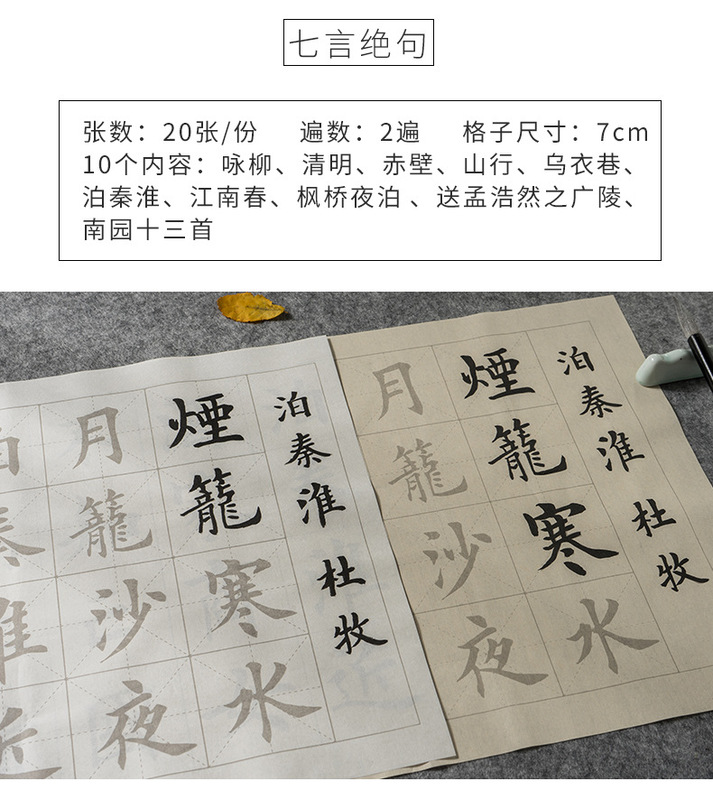 七言绝句
张数：20张/份 遍数：2遍 格子尺寸：7cm
10个内容：咏柳、清明、赤壁、山行、乌衣巷、
泊秦淮、江南春、枫桥夜泊、送孟浩然之广陵、
南园十三首
泊秦淮 杜牧
煙籠寒水
月籠沙夜
泊秦淮近
泊秦淮 杜牧
煙籠寒水
月籠沙夜